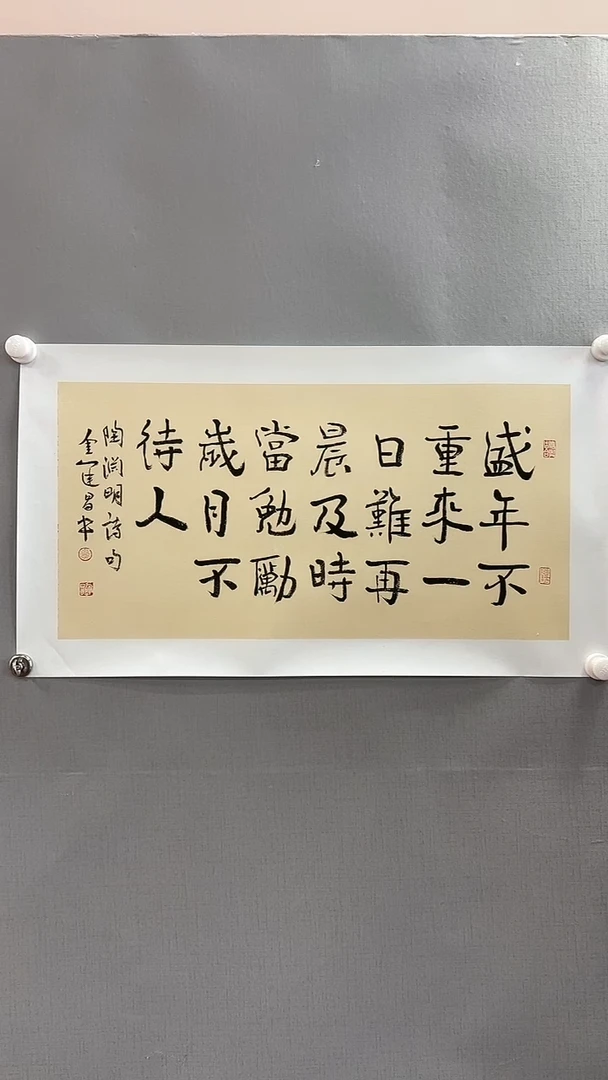 盛年不
重來一
日難再
晨及時
當勉勵
歲月不
待人
陶渊明詩句
金運昌书